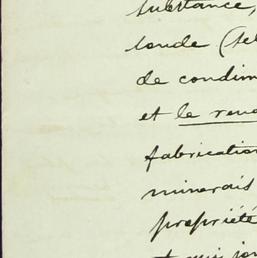 substance,
soude (sel
de condim
et le rend
fabrication
minerais
propriété
et qui jou